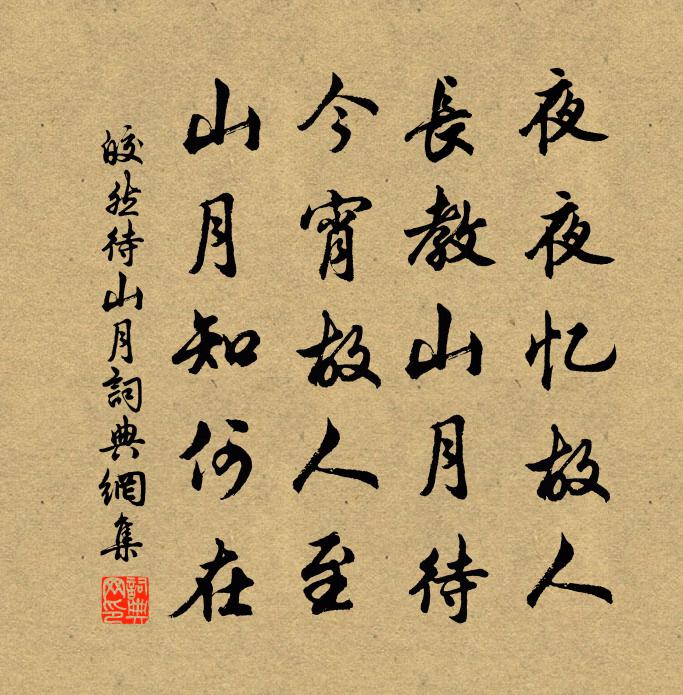 夜夜忆故人
長教山月待
今宵故人至
山月知何在
皎然待山月詞典網集
詞典
网印